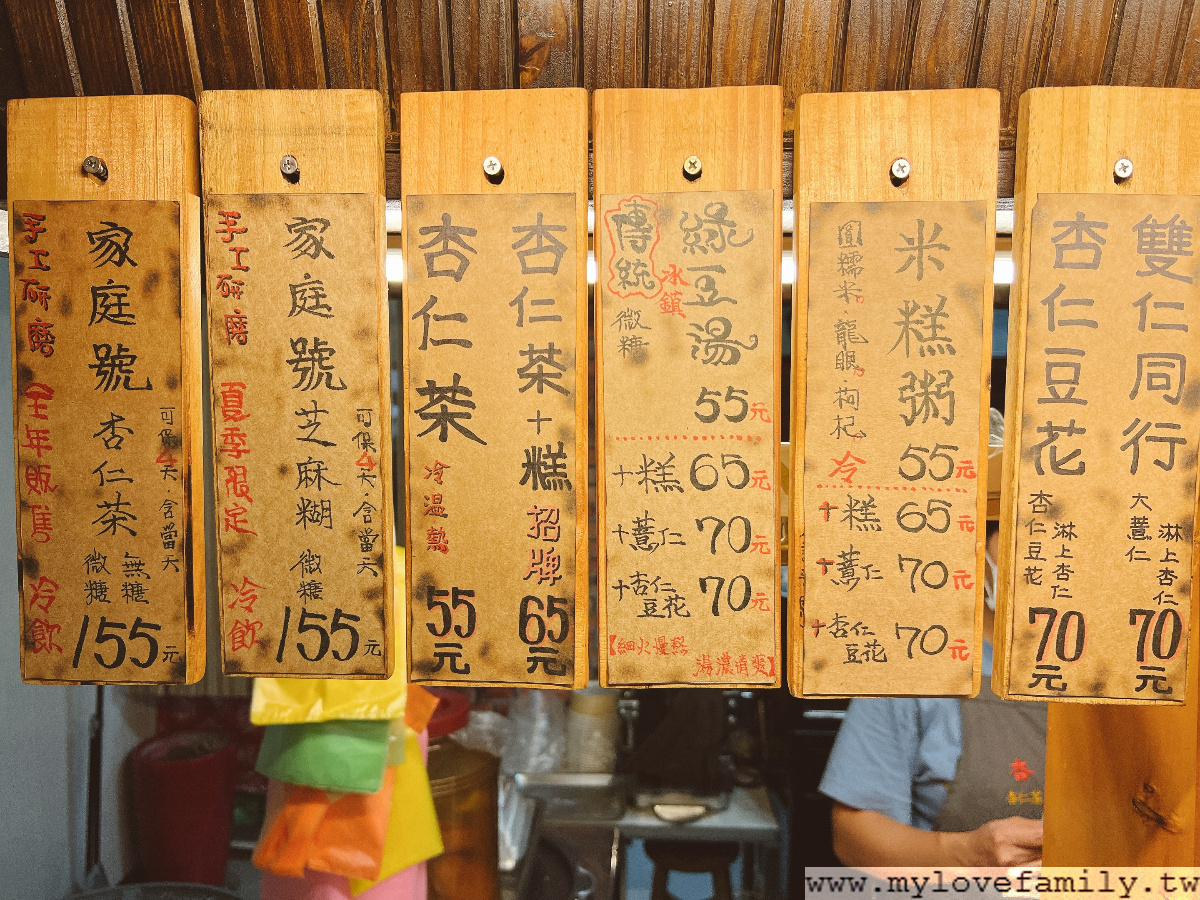 可保4天·含當天
家庭號杏仁茶
無糖
微糖
155元
手工研磨 全年販售 冷飲
可保4天·含當天
家庭號芝麻糊
微糖
155元
手工研磨 夏季限定 冷飲
杏仁茶+糕 招牌 65元
杏仁茶 冷溫熱 55元
綠豆湯
傳統
冰鎮
微糖
55元
+糕 65元
+薏仁 70元
+杏仁豆花 70元
【細火慢熬
湯濃清爽】
米糕粥
圓糯米。龍眼。枸杞
冷 55元
+糕 65元
+薏仁 70元
+杏仁豆花 70元
雙仁同行
淋上杏仁
大薏仁
70元
杏仁豆花
淋上杏仁
杏仁豆花
70元
杏
杏仁茶
www.mylovefamily.tw